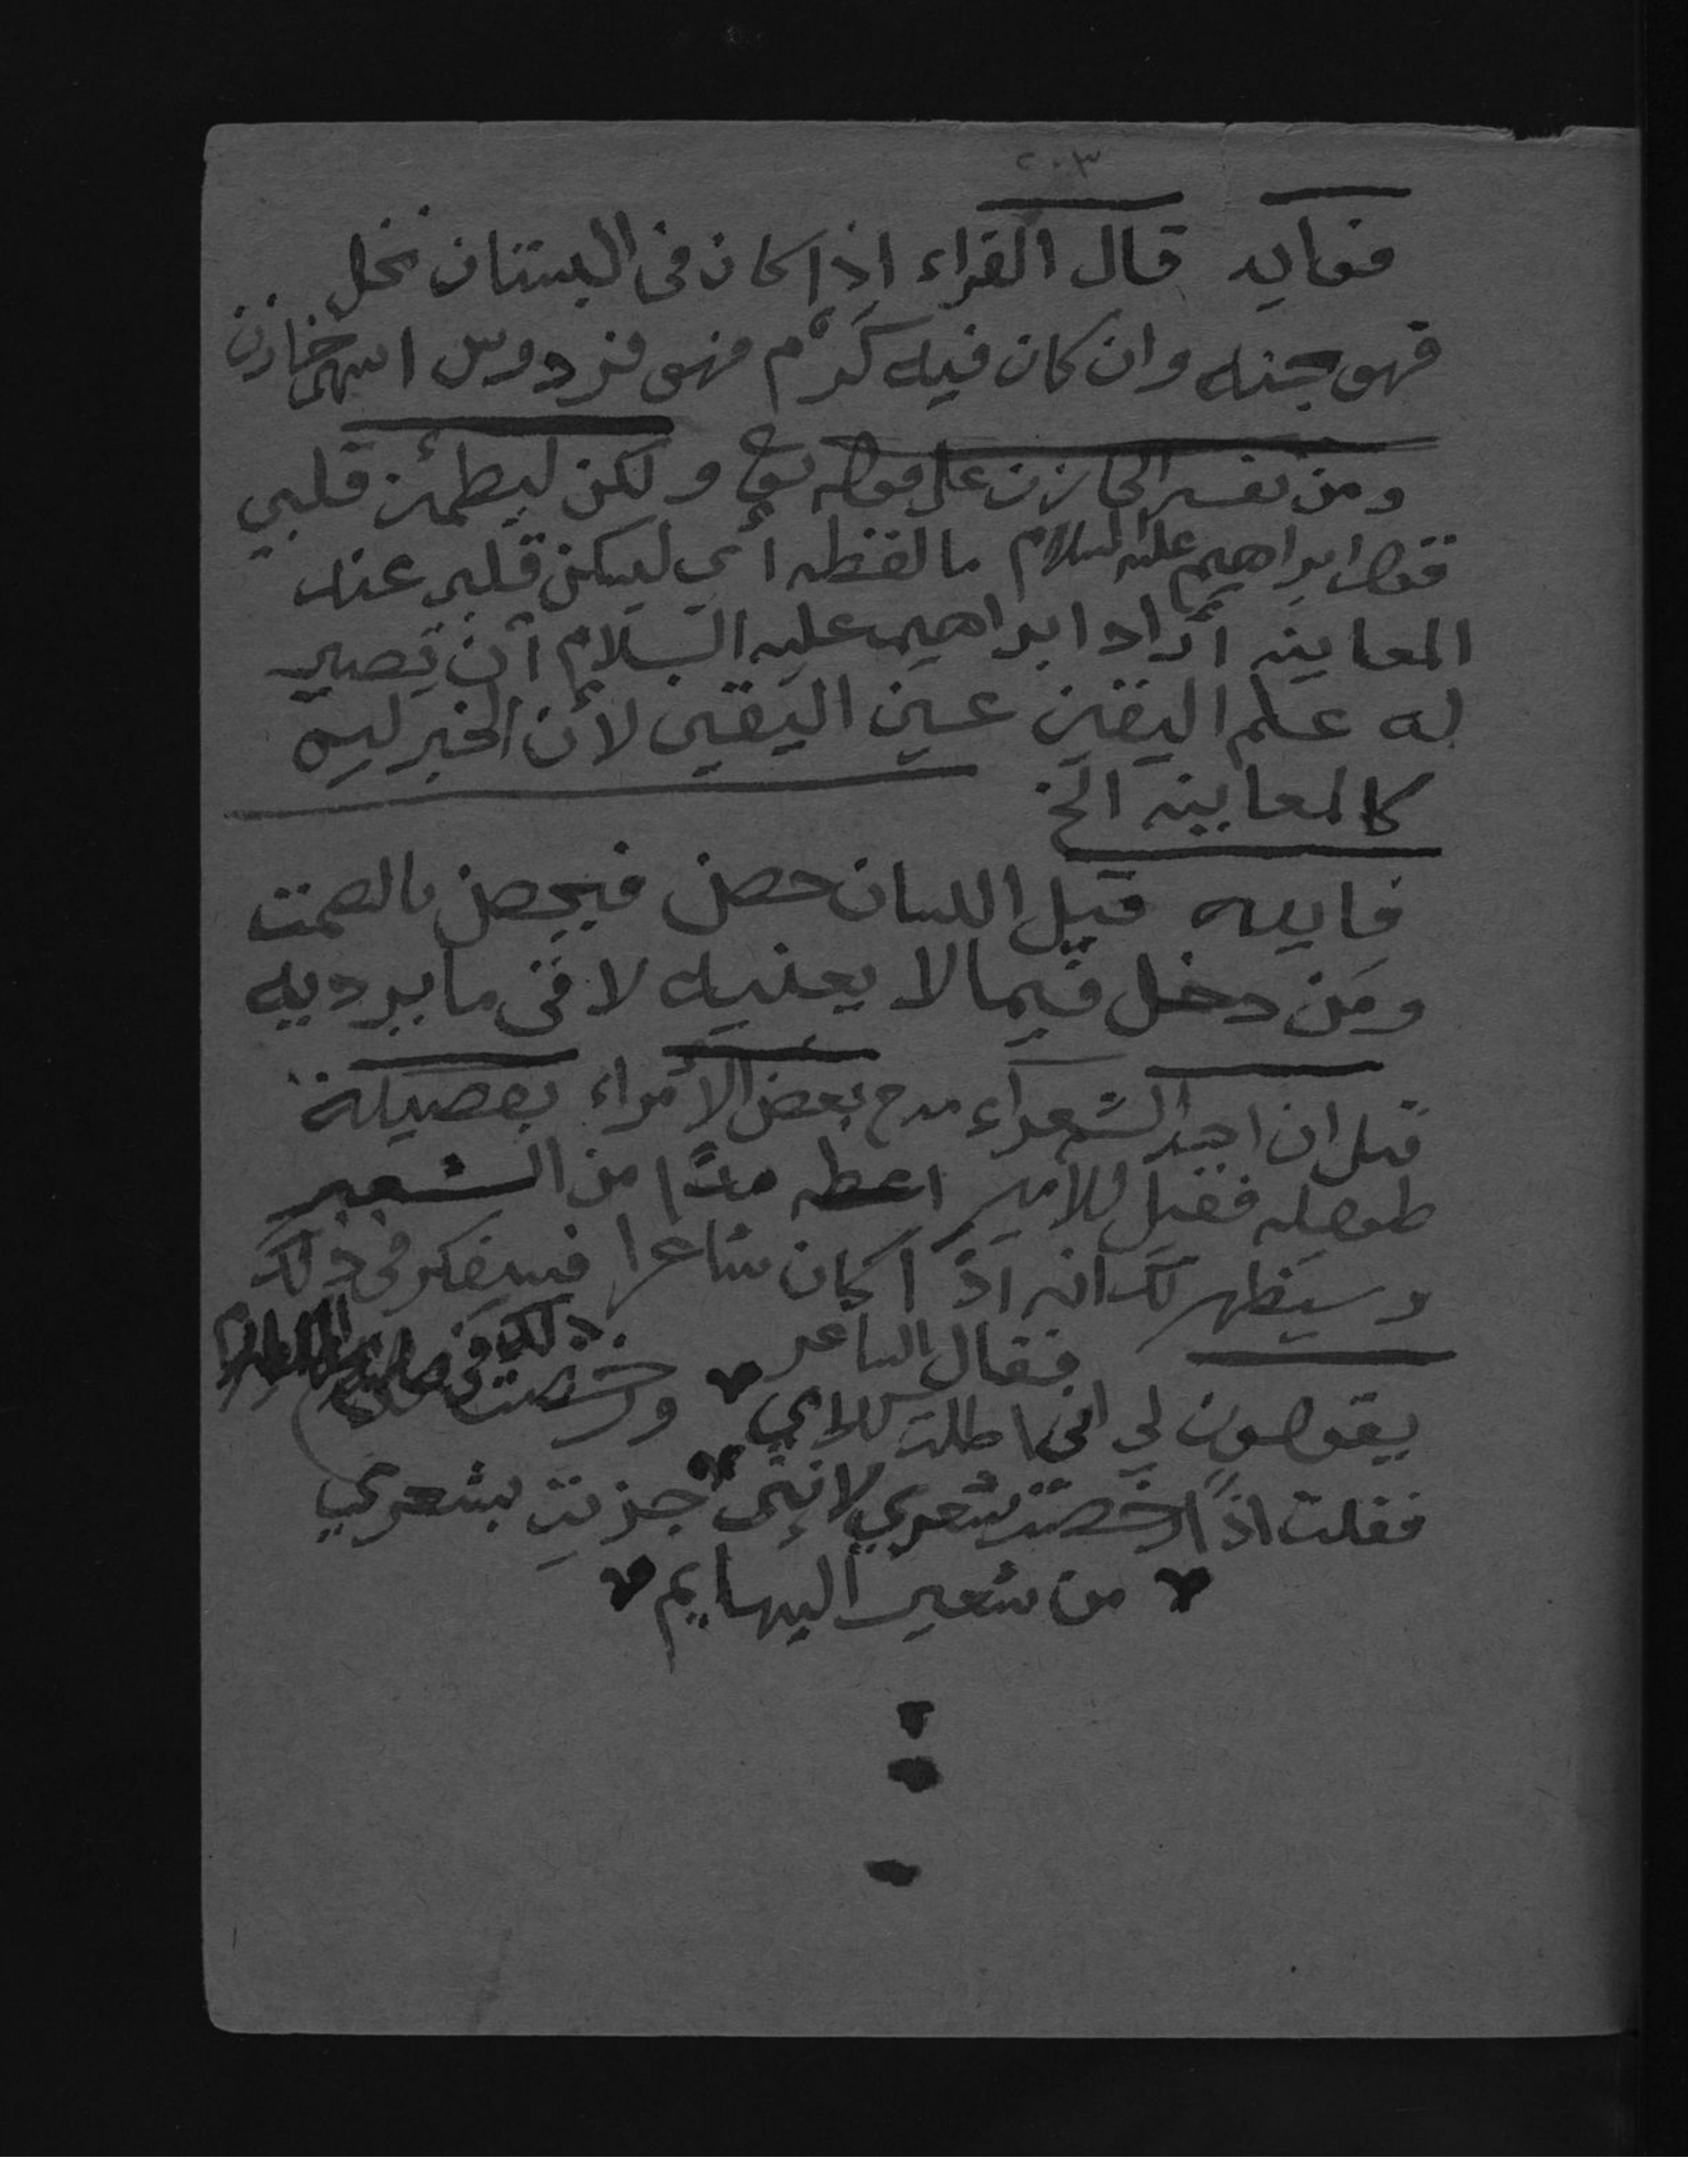 ٢٠٣
فوايد قال الفراء اذا كان فى البستان نخل
فهو جنه وان كان فيه كَرْم فهو فردوس انتهى خازن
ومن تفسير الخازن على قوله تع ولكن ليطمئن قلبي
فقول ابراهيم عليه السلام ما لفظه أي ليسكن قلبى عند
المعاينه أراد ابراهيم عليه السلام أن يصير
له علم اليقين عين اليقين لأن الخبر ليس
كالمعاينه الخ
فايده قيل اللسان حصن فيحصن بالصمت
ومن دخل فيما لا يعنيه لاقى ما يرديه
قيل ان احد الشعراء مدح بعض الأمراء بقصيدة
طويله فقيل للأمير اعطه مدًا من الشعير
وسيظهر لك انه اذا كان شاعرا فسيفكر فى ذلك
فقال الشاعر
يقولون لي انى اطلت كلامي ورخصت
ذلك فى
فقلت اذًا ارخصت شعري لاننى جزيت بشعري
من شعير البهايم